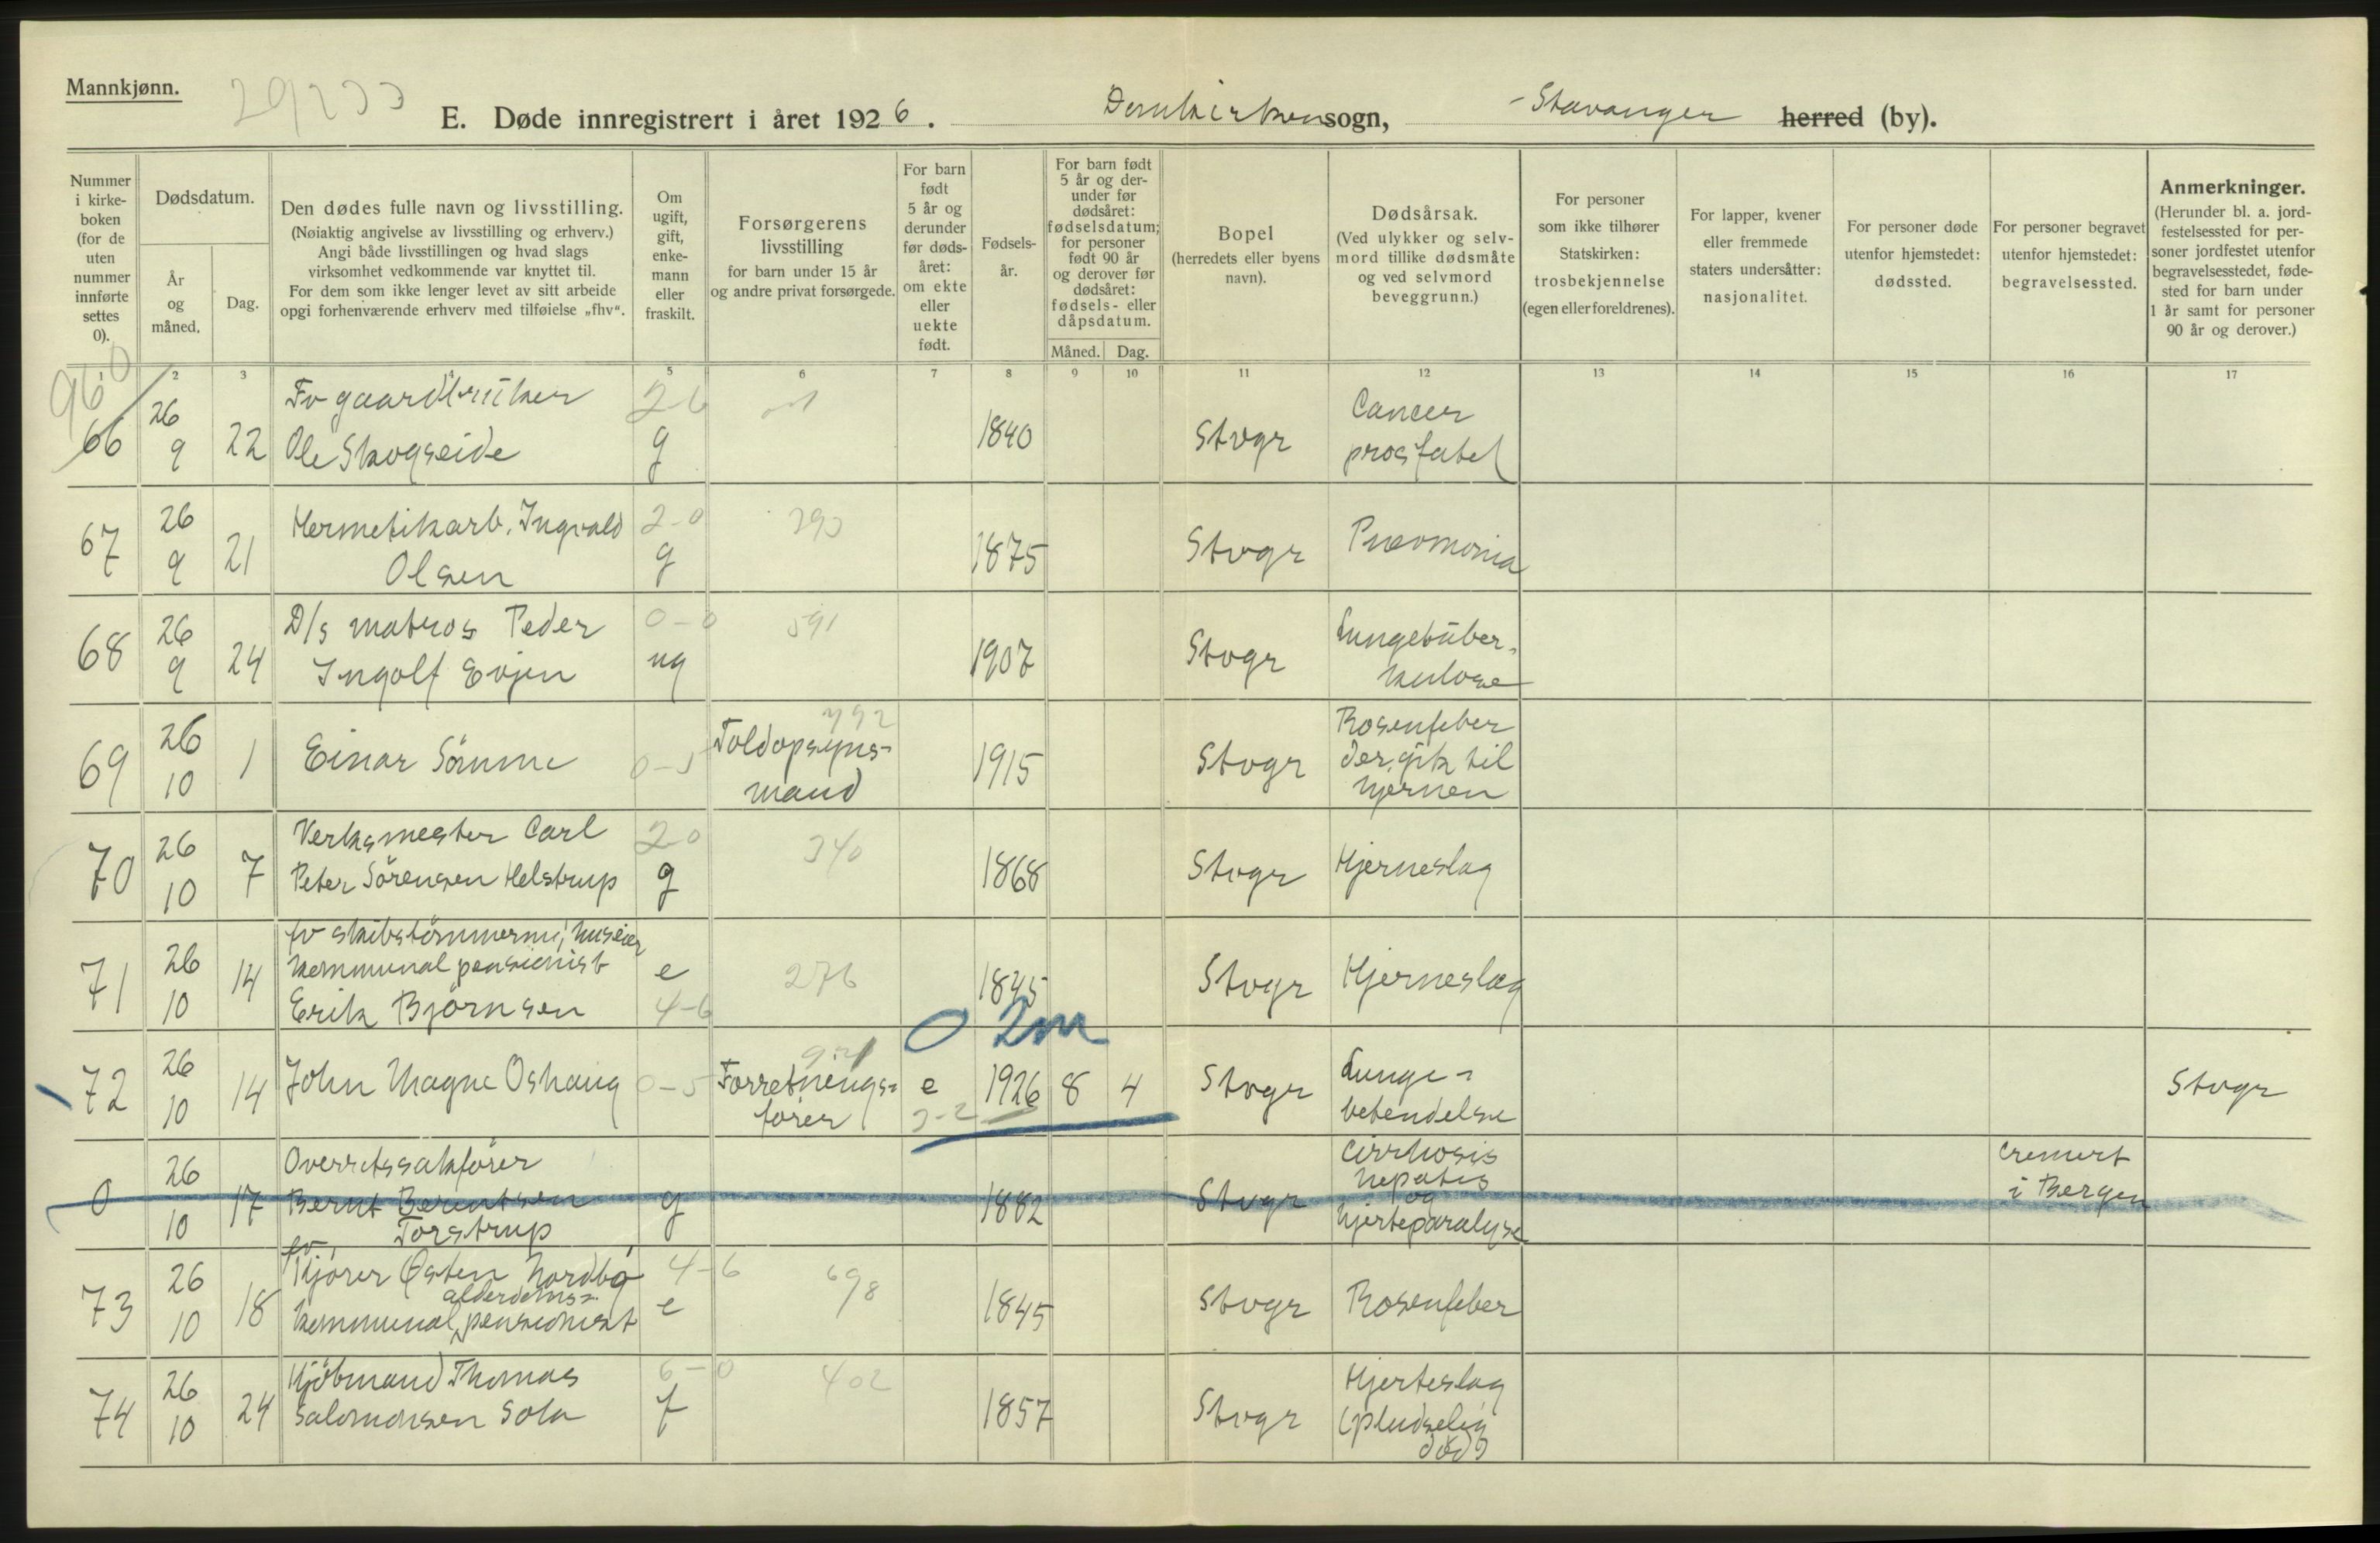 Mannkjønn.
29233
E. Døde innregistrert i året 1926. Domkirken sogn, - Stavanger herred (by).
Nummer i kirke-boken (for de uten nummer innførte settes 0).
Dødsdatum.
År og måned.
Dag.
Den dødes fulle navn og livsstilling.
(Nøiaktig angivelse av livsstilling og erhverv.)
Angi både livsstillingen og hvad slags
virksomhet vedkommende var knyttet til.
For dem som ikke lenger levet av sitt arbeide
opgi forhenværende erhverv med tilføielse „fhv“.
Om ugift, gift, enke-mann eller fraskilt.
Forsørgerens
livsstilling
for barn under 15 år
og andre privat forsørgede.
For barn født 5 år og derunder før døds-året: om ekte eller uekte født.
Fødsels-år.
For barn født 5 år og der-under før dødsåret: fødselsdatum; for personer født 90 år og derover før dødsåret: fødsels- eller dåpsdatum.
Måned. Dag.
Bopel
(herredets eller byens navn).
Dødsårsak.
(Ved ulykker og selv-mord tillike dødsmåte og ved selvmord beveggrunn.)
For personer som ikke tilhører Statskirken: trosbekjennelse (egen eller foreldrenes).
For lapper, kvener eller fremmede staters undersåtter: nasjonalitet.
For personer døde utenfor hjemstedet: dødssted.
For personer begravet utenfor hjemstedet: begravelsessted.
Anmerkninger.
(Herunder bl. a. jord-festelsessted for per-soner jordfestet utenfor begravelsesstedet, føde-sted for barn under 1 år samt for personer 90 år og derover.)
1 2 3 4 5 6 7 8 9 10 11 12 13 14 15 16 17
960
66 26 9 22 Fv gaardbruker Ole Skogseide 2-6 g 1840 Stvgr Cancer prostatel
67 26 9 21 Hermetikarb. Ingvald Olsen 2-0 g 293 1875 Stvgr Pneomonia
68 26 9 24 D/s matros Peder Ingolf Evjen 0-0 ug 591 1907 Stvgr Lungetuber-kulose
69 26 10 1 Einar Sømme 0-5 792 Toldopsyns-mand 1915 Stvgr Rosenfeber der gik til hjernen
70 26 10 7 Verksmester Carl Peter Sörensen Helstrup 2-0 g 340 1868 Stvgr Hjerneslag
71 26 10 14 fv skibstømmerm, huseier kommunal pensionist Erik Björnsen e 4-6 276 1845 Stvgr Hjerneslag
0 2m
72 26 10 14 John Magne Oshaug 0-5 921 Forretnings-fører e 3-2 1926 8 4 Stvgr Lunge-betendelse Stvgr
0 26 10 17 Overretssakfører Bernt Berentsen Torstrup g 1882 Stvgr Cirrhosis hepatis og hjerteparalyse cremert i Bergen
73 26 10 18 fv Kjører Østen Nordbø kommunal alderdoms-pensionist 4-6 e 698 1845 Stvgr Rosenfeber
74 26 10 24 Kjöbmand Thomas Salomonsen Sola 6-0 f 402 1857 Stvgr Hjerteslag (pludselig død)